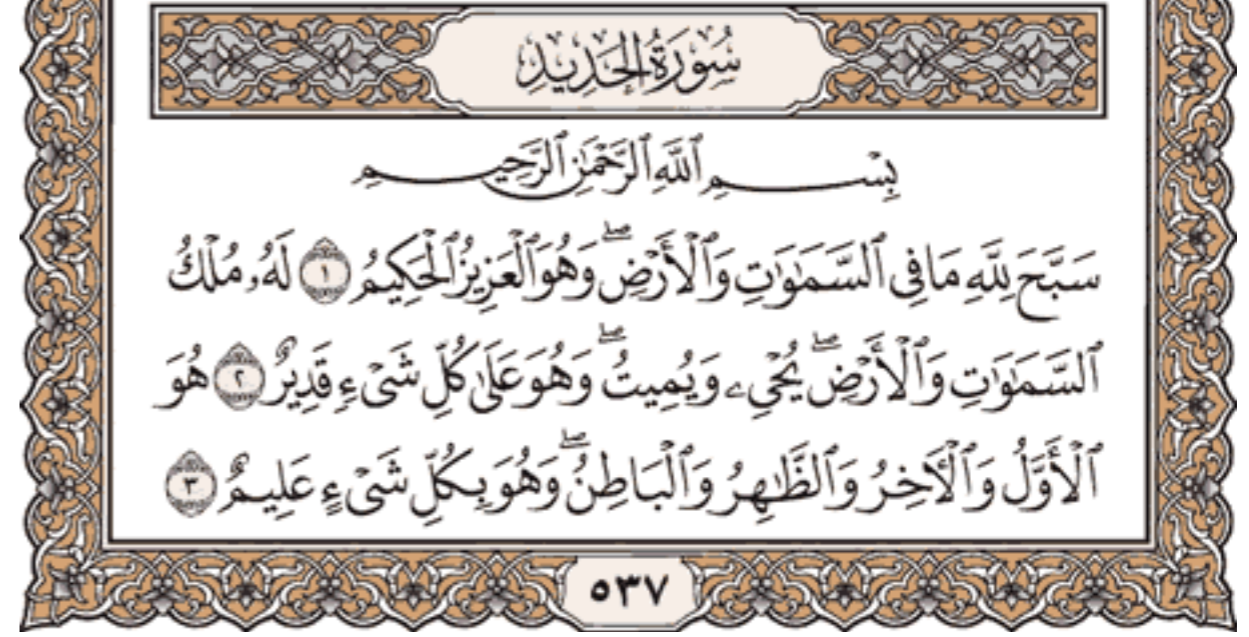 سُورَةُ الحَدِيدِ
بِسْمِ ٱللَّهِ ٱلرَّحْمَٰنِ ٱلرَّحِيمِ
سَبَّحَ لِلَّهِ مَا فِى ٱلسَّمَٰوَٰتِ وَٱلْأَرْضِۖ وَهُوَ ٱلْعَزِيزُ ٱلْحَكِيمُ ١ لَهُۥ مُلْكُ
ٱلسَّمَٰوَٰتِ وَٱلْأَرْضِۖ يُحْىِۦ وَيُمِيتُۖ وَهُوَ عَلَىٰ كُلِّ شَىْءٍ قَدِيرٌ ٢ هُوَ
ٱلْأَوَّلُ وَٱلْءَاخِرُ وَٱلظَّٰهِرُ وَٱلْبَاطِنُۖ وَهُوَ بِكُلِّ شَىْءٍ عَلِيمٌ ٣
٥٣٧